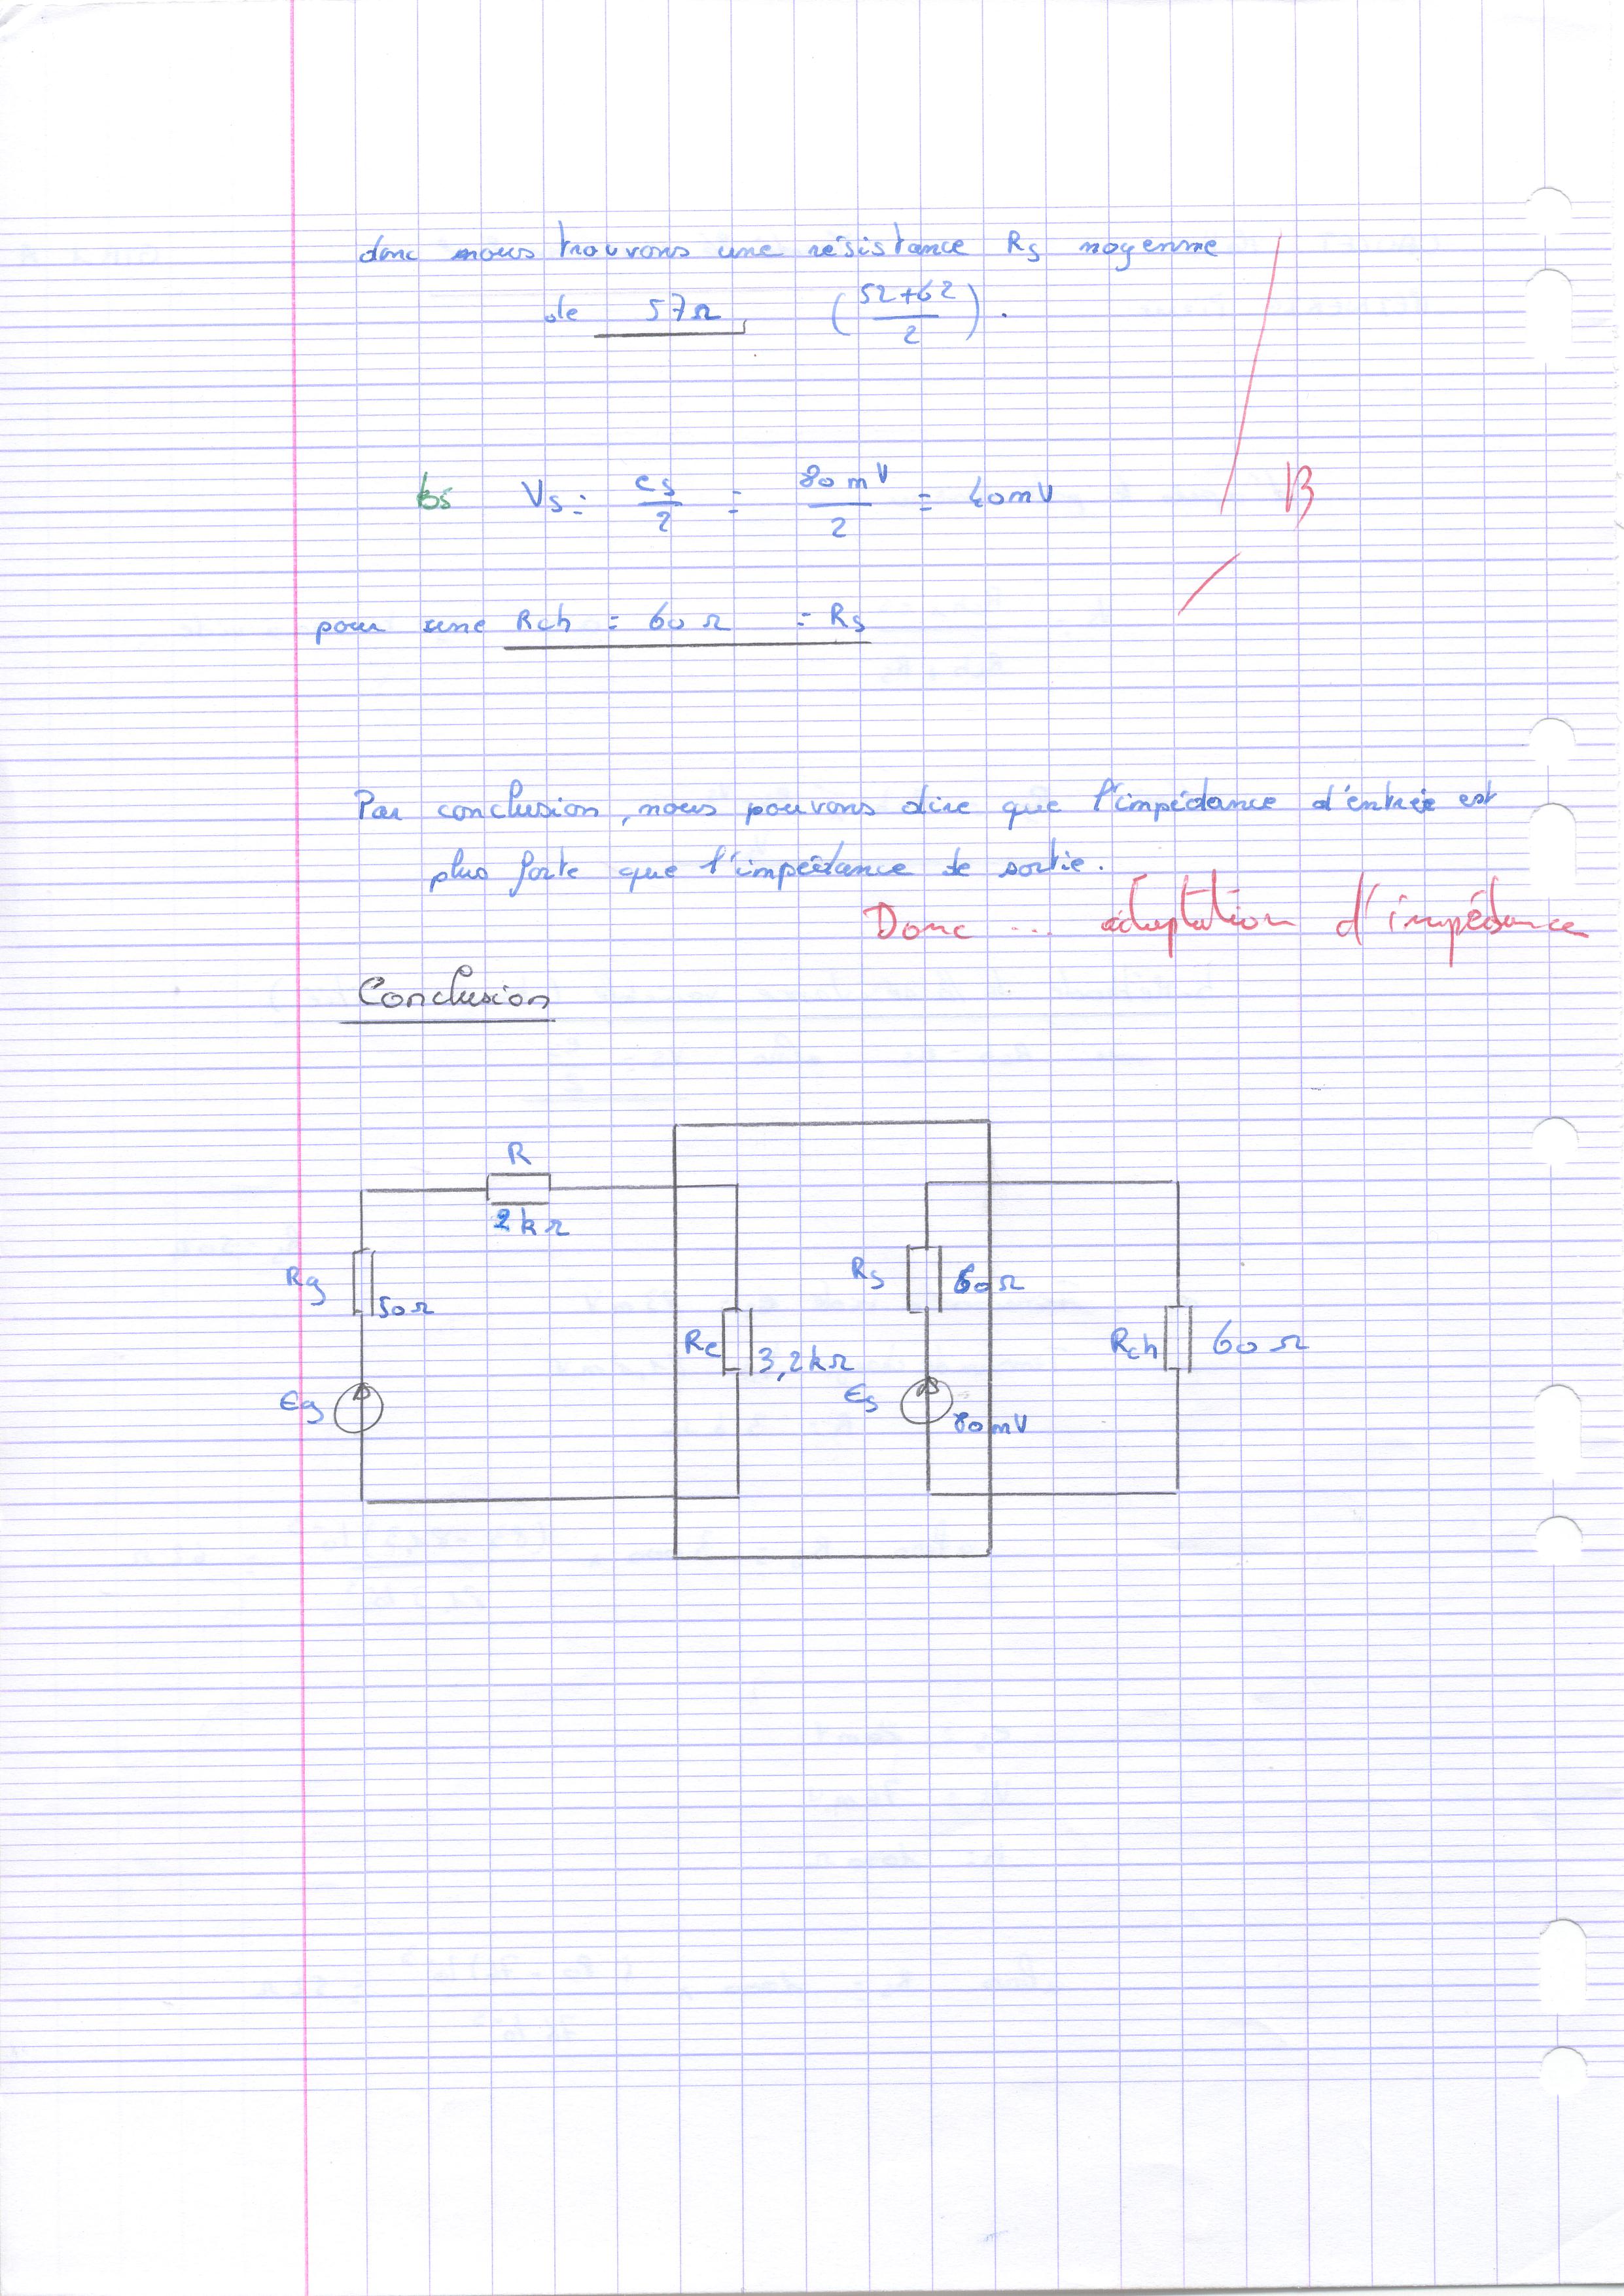 donc nous trouvons une résistance Rs moyenne
de 57Ω (52+62/2).
Vs = es/2 = 80mV/2 = 40mV
B
pour une Rch = 60Ω = Rs
Par conclusion, nous pouvons dire que l'impédance d'entrée est
plus forte que l'impédance de sortie.
Donc ... adaptation d'impédance
Conclusion
R
2kΩ
Rg
50Ω
Rs
60Ω
Re
3,2kΩ
Rch
60Ω
Eg
Es
80mV